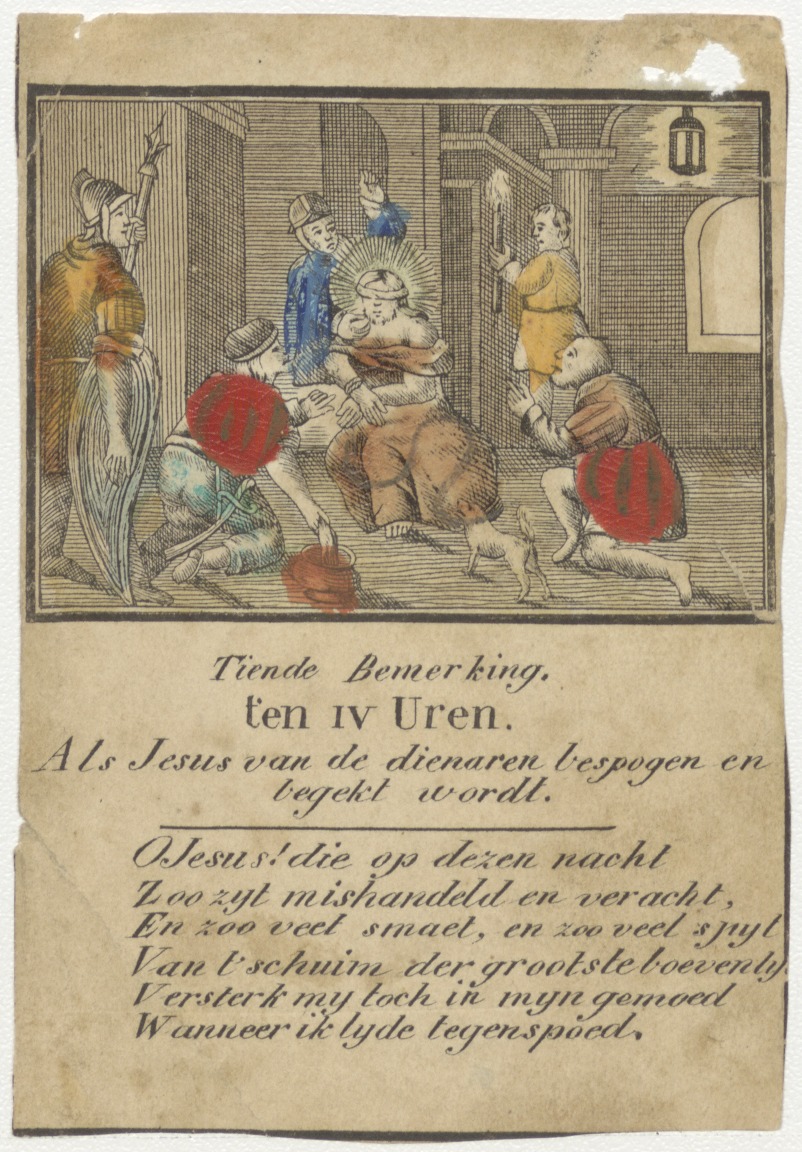 Tiende Bemerking.
ten IV Uren.
Als Jesus van de dienaren bespogen en
begekt wordt.
O Jesus! die op dezen nacht
Zoo zyt mishandeld en veracht,
En zoo veel smaet, en zoo veel spyt
Van t'schuim der grootste boevenly
Versterk my toch in myn gemoed
Wanneer ik lyde tegenspoed.